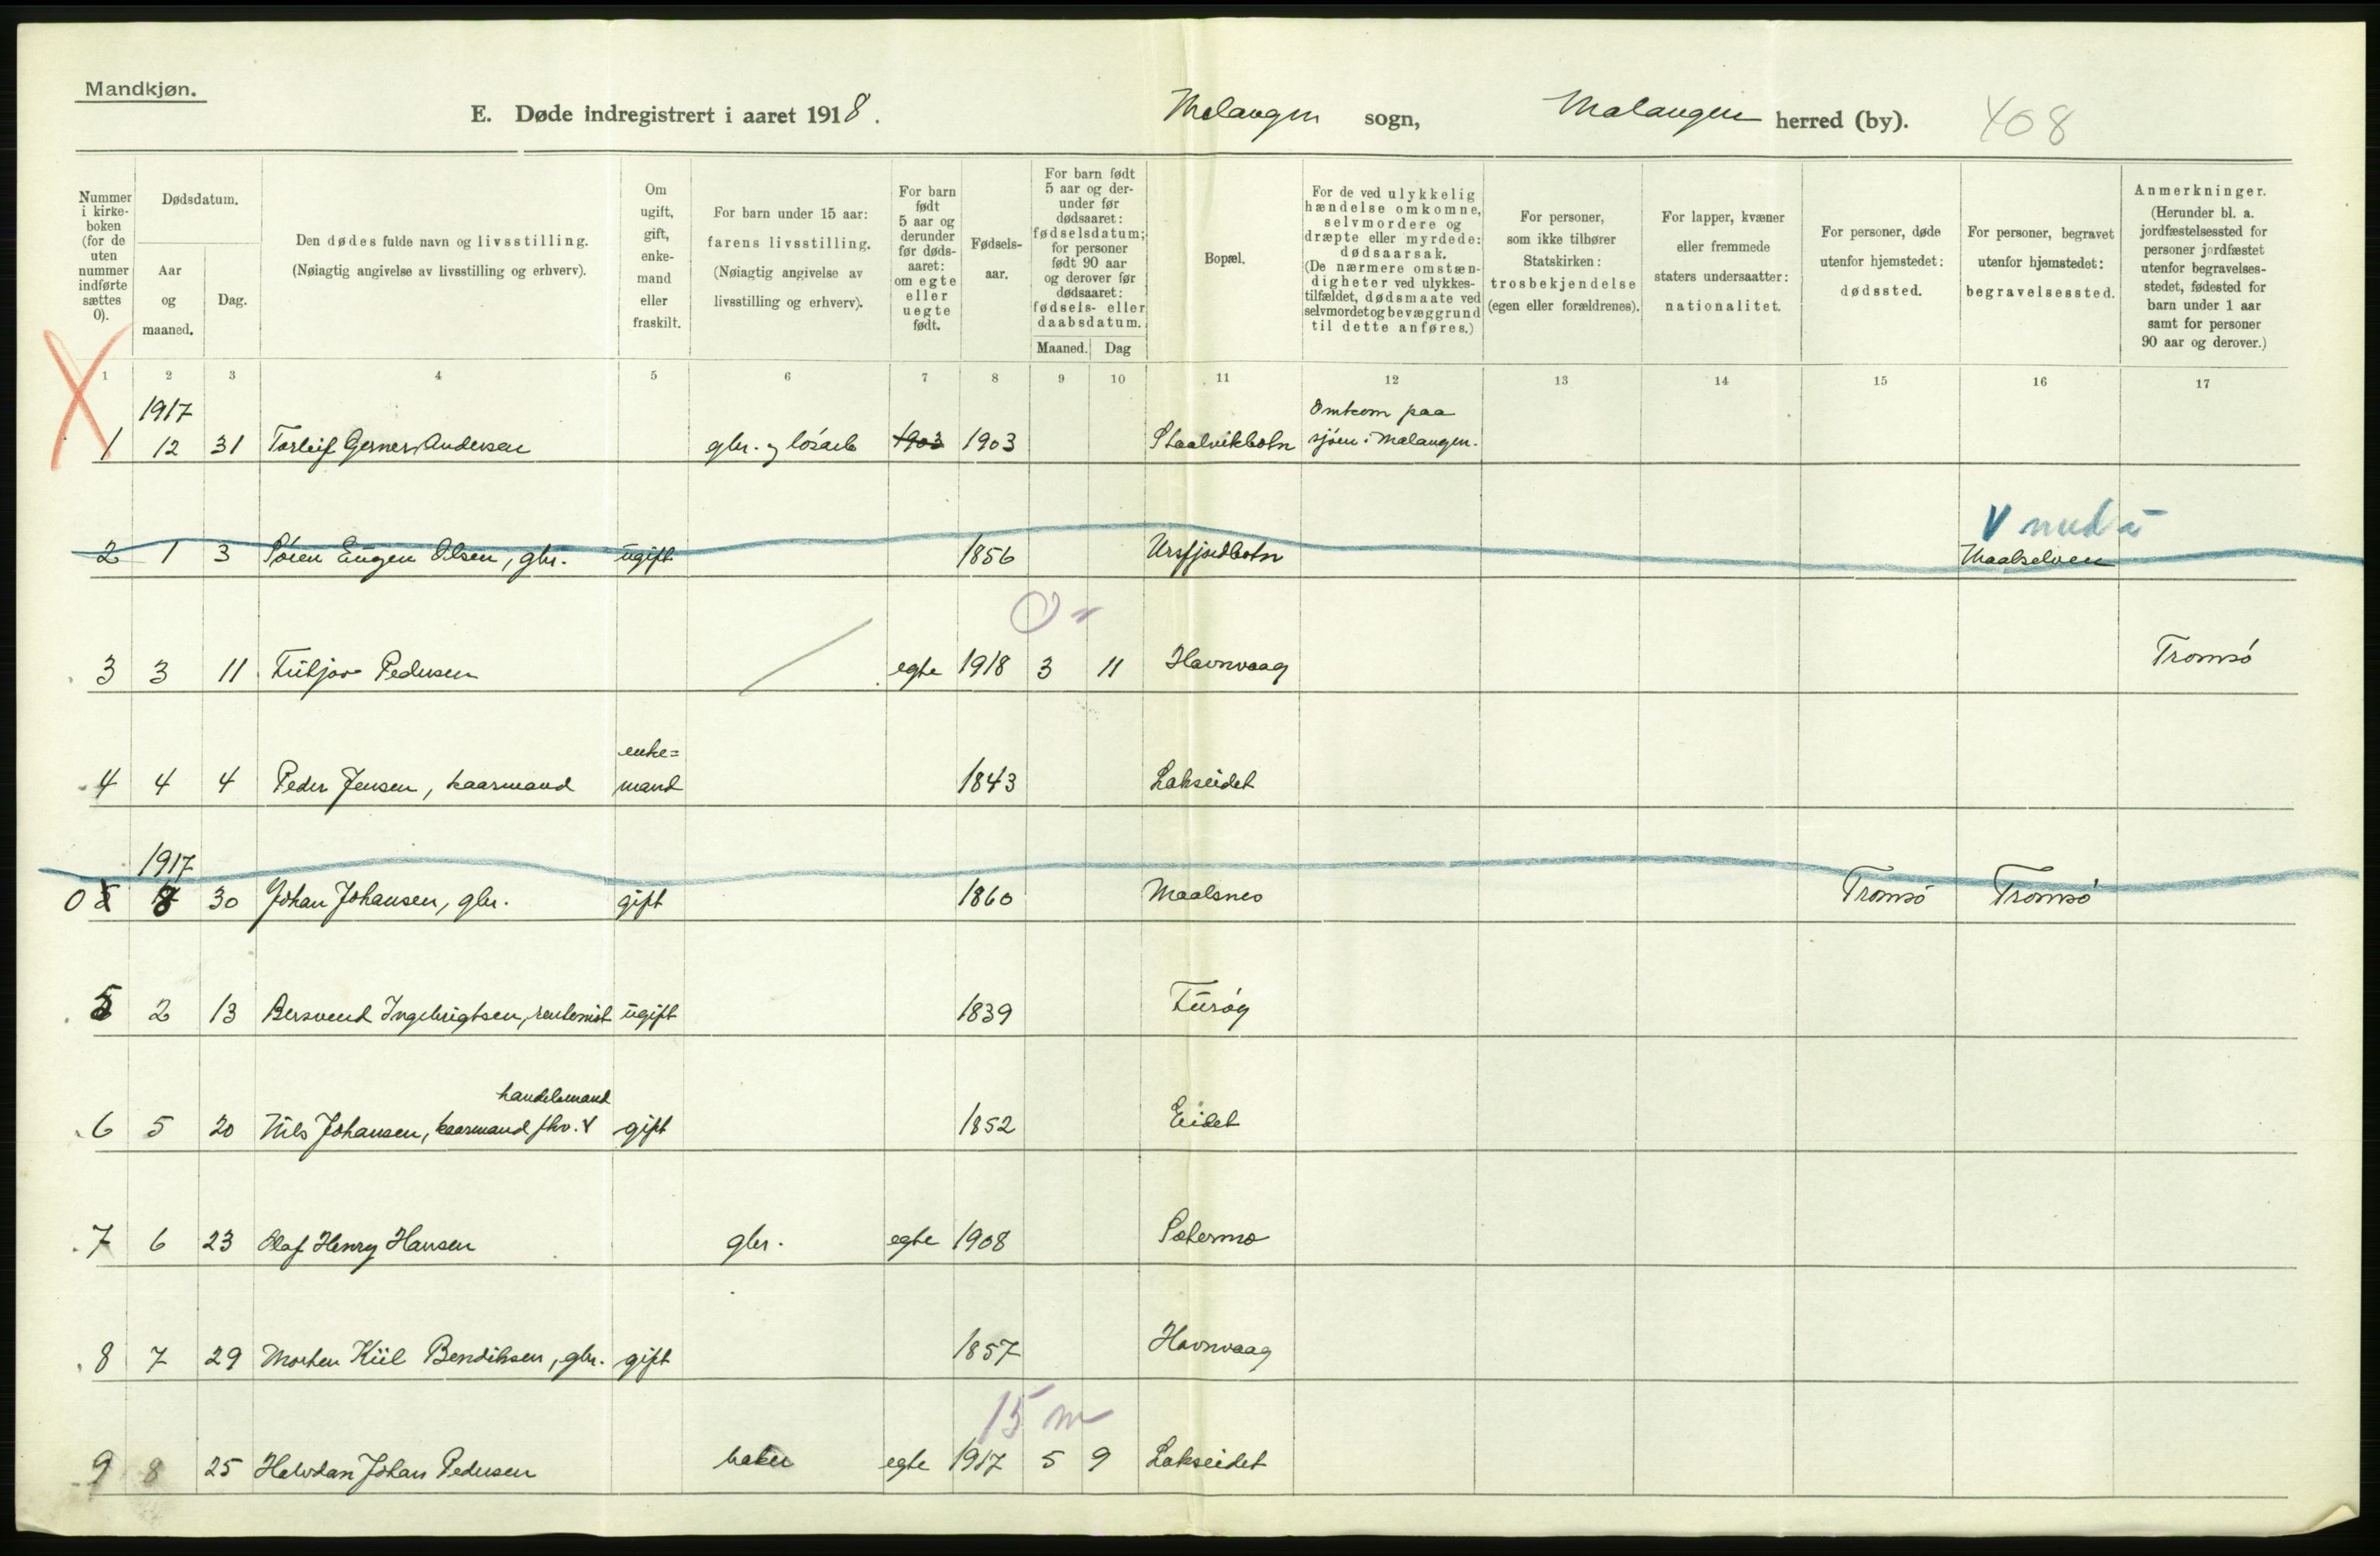 Mandkjøn.
E. Døde indregistrert i aaret 1918. Malangen sogn, Malangen herred (by). 408
Nummer i kirke-boken (for de uten nummer indførte sættes 0).
Dødsdatum.
Aar og maaned.
Dag.
Den dødes fulde navn og livsstilling.
(Nøiagtig angivelse av livsstilling og erhverv).
Om ugift, gift, enke-mand eller fraskilt.
For barn under 15 aar: farens livsstilling.
(Nøiagtig angivelse av livsstilling og erhverv).
For barn født 5 aar og derunder før døds-aaret: om egte eller uegte født.
Fødsels-aar.
For barn født 5 aar og der-under før dødsaaret: fødselsdatum; for personer født 90 aar og derover før dødsaaret: fødsels- eller daabsdatum.
Maaned. Dag
Bopæl.
For de ved ulykkelig hændelse omkomne, selvmordere og dræpte eller myrdede: dødsaarsak.
(De nærmere omstæn-digheter ved ulykkes-tilfældet, dødsmaate ved selvmordet og bevæggrund til dette anføres.)
For personer, som ikke tilhører Statskirken: trosbekjendelse (egen eller forældrenes).
For lapper, kvæner eller fremmede staters undersaatter: nationalitet.
For personer, døde utenfor hjemstedet: dødssted.
For personer, begravet utenfor hjemstedet: begravelsessted.
Anmerkninger.
(Herunder bl. a. jordfæstelsessted for personer jordfæstet utenfor begravelses-stedet, fødested for barn under 1 aar samt for personer 90 aar og derover.)
1 2 3 4 5 6 7 8 9 10 11 12 13 14 15 16 17
1917 Omkom paa
1 12 31 Torleif Gerner Andersen gbr. og løsarb 1903 1903 Staalvikbotn sjøen i Malangen.
V
2 1 3 Søren Eugen Olsen, gbr. ugift 1856 Ursfjordbotn Maalselven
0
3 3 11 Pedersen egte 1918 3 11 Havnvaag Tromsø
enke=
4 4 4 Peder Jensen, kaarmand mand 1843 Lakseidet
1917
0 5 8 30 Johan Johansen, gbr. gift 1860 Maalsnes Tromsø Tromsø
5 2 13 Bersvend Ingebrigtsen, rentenist ugift 1839
handelsmand
6 5 20 Nils Johansen, kaarmand fhv. V gift 1852 Eidet
7 6 23 Olaf Henry Hansen gbr. egte 1908 Sætermo
8 7 29 Morten Kiil Bendiksen, gbr. gift 1857 Havnvaag
15 m
9 8 25 Halvdan Johan Pedersen baker egte 1917 5 9 Lakseidet